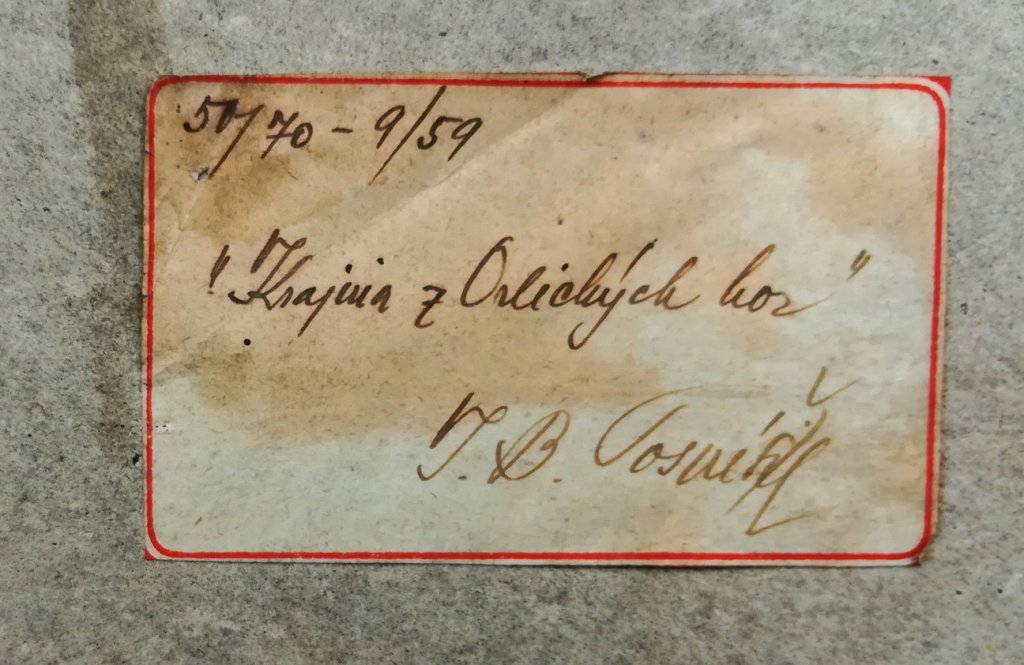 50/70 - 9/59
"Krajina z Orlických hor"
J. B.